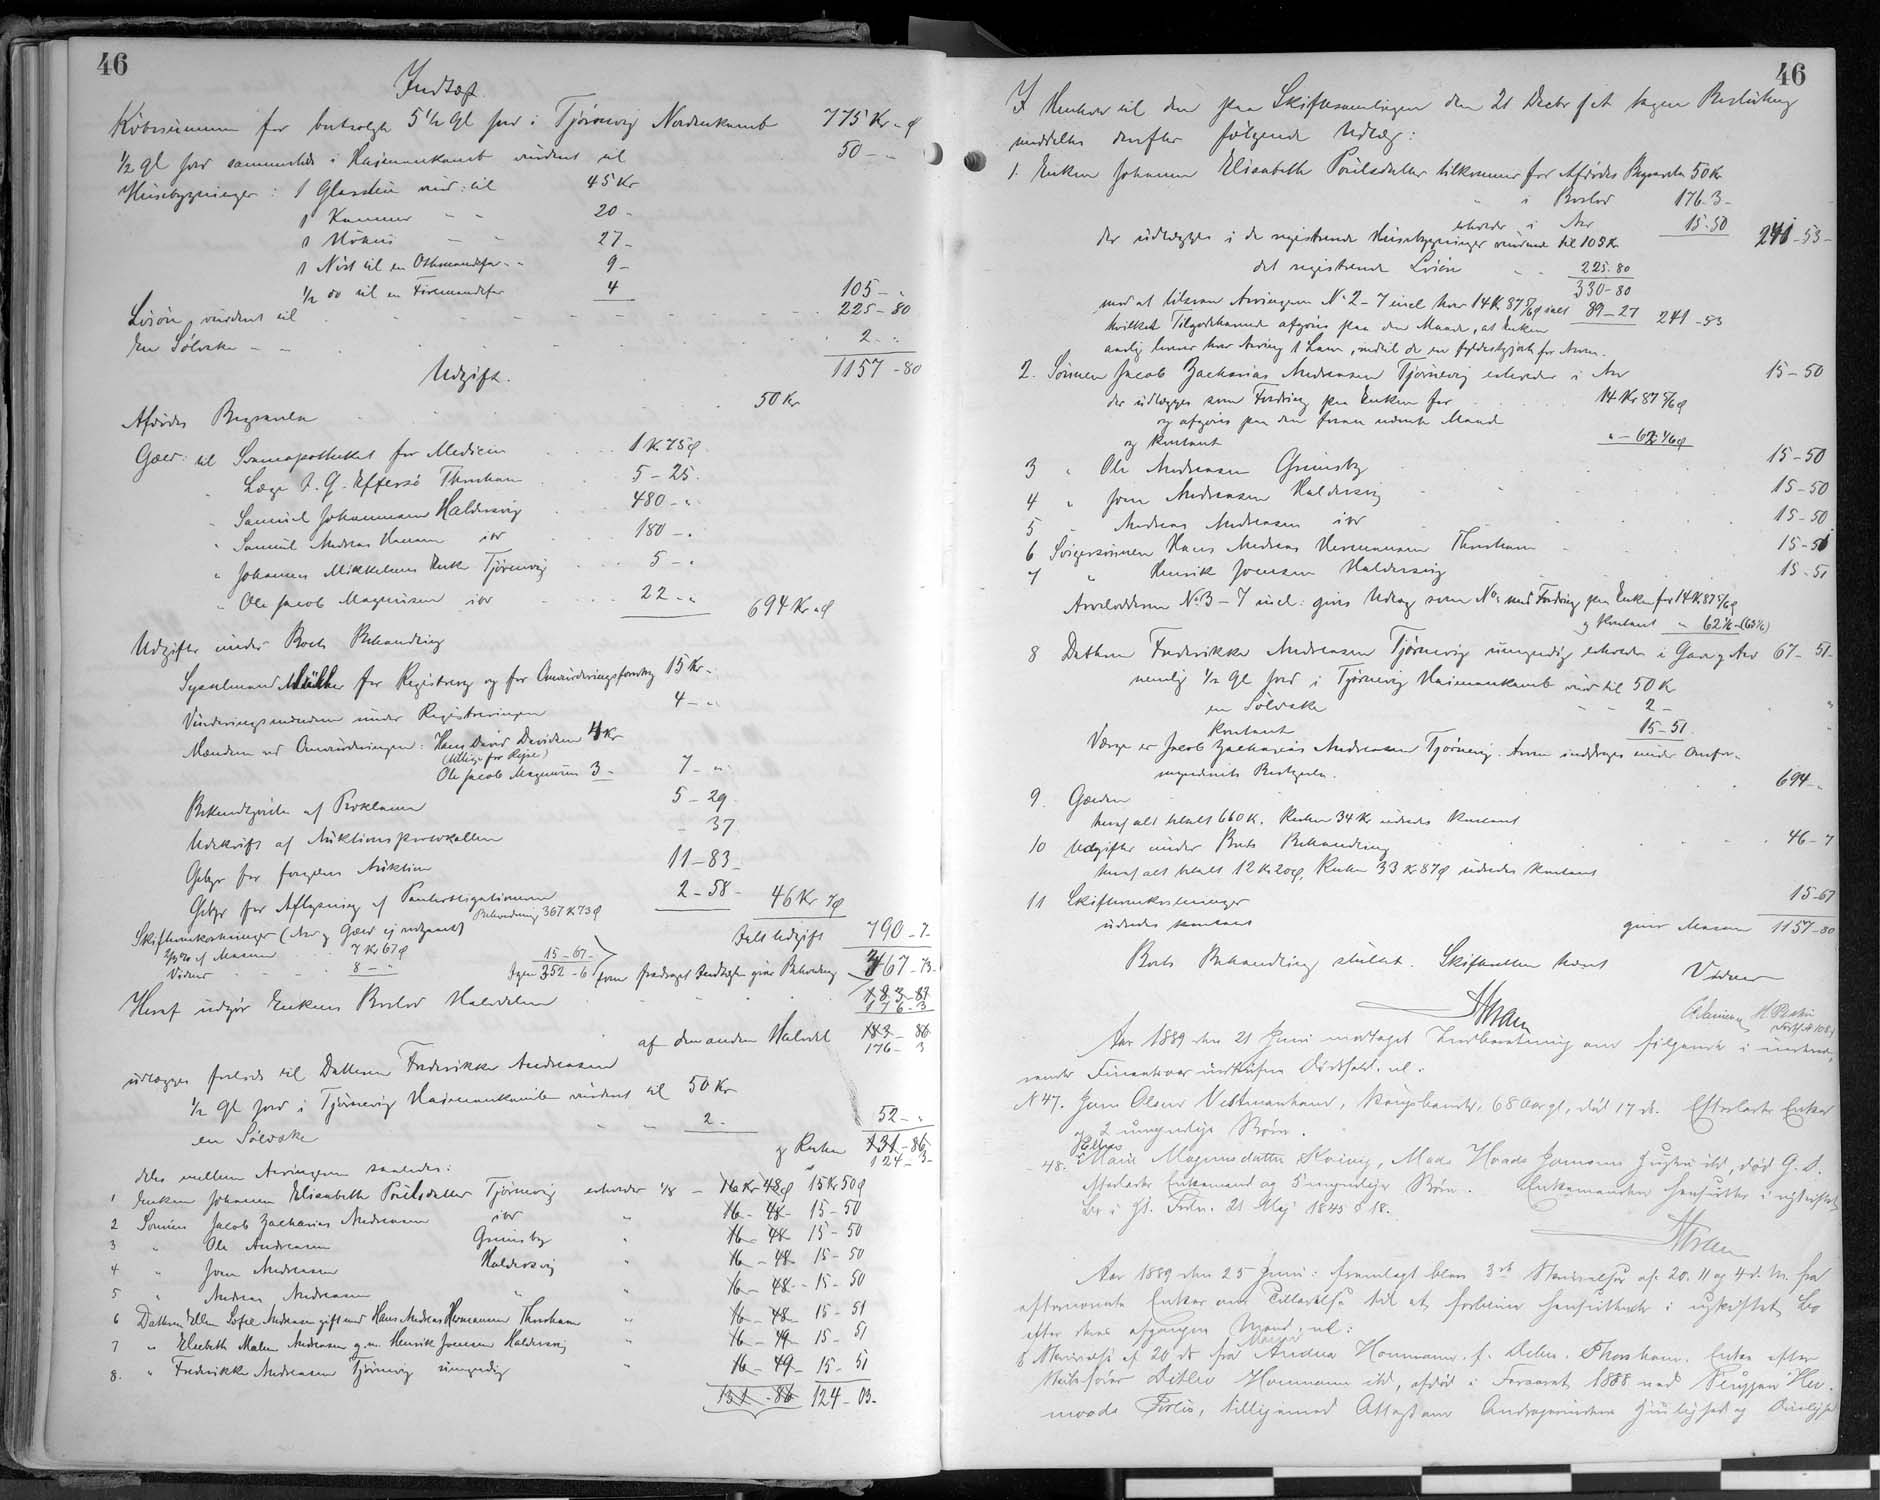 46
Indtægt
Købesummen for bortsolgte 5 1/2 Gl Jord i Tjørnevig Nordenkamb 775 Kr - Ø
1/2 Gl Jord sammesteds i Haimankamb vurderet til 50 - "
Huusbygninger: 1 Glasstue vurd: til 45 Kr
1 Kammer - - 20 -
1 Utøhuus - - 27 -
1 Nøst til en Ottemandsfar - - 9 -
1/2 do til en Firemandsfar 4 105 - "
Løsøre vurderet til 225 - 80
En Sølvske - - 2 - "
1157 - 80
Udgift.
Afdødes Begravelse 50 Kr
Gæld: til Sømapotheket for Medicin 1 K 75 Ø
" Læge Effersø Thorshavn 5 - 25
" Samuel Johannesen Haldersvig 480 - "
" Samuel Andreas Hansen ibd 180 - "
" Johannes Mikkelsens Enke Tjørnevig 5 - "
" Ole Jacob Magnussen ibd 22 - " 694 Kr " Ø
Udgifter under Boets Behandling
Sysselmand Müller for Registrering og for Omvurderingsforretng 15 Kr -
Vurderingsmændene under Registreringen 4 - "
Mændene ved Omvurderingen: Hans David Davidsen 4 Kr
(tillige for Rejse)
Ole Jacob Magnussen 3 - 7 - "
Bekendtgjørelse af Proklama 5 - 29
Udskrift af Auktionsprotokollen - 37
Gebyr for forgjæves Auktion 11 - 83 -
Gebyr for Aflysning af Panteobligationen 2 - 58 - 46 Kr 7 Ø
Beholdning 367 K 73 Ø
Skifteomkostninger (Arv og Gæld ej udgjort) Ialt Udgift 790 - 7 -
2/3 % af Massen 7 Kr 67 Ø 15 - 67 -
Vidner 8 - " Igen 352 - 6 som fradraget Indtægten giver Beholdning 367 - 73 -
183 - 87
Heraf udgjør Enkens Boslod Halvdelen 176 - 3
af den anden Halvdel 183 - 86
176 - 3
udlægges forlods til Datteren Frederikke Andreasen
1/2 Gl Jord i Tjørnevig Haimankamb vurderet til 50 Kr
en Sølvske 2 - 52 - "
og Resten 131 - 86
124 - 3 -
deles mellem Arvingerne saaledes:
1 Enken Johanne Elisabeth Poulsdatter Tjørnevig erholder 1/8 - 16 Kr 48 Ø 15 Kr 50 Ø
2 Sønnen Jacob Zacharias Andreasen ibd " 16 - 48 - 15 - 50
3 " Ole Andreasen Grimsby " 16 - 48 15 - 50
4 " Joen Andreasen Haldersvig " 16 - 48 - 15 - 50
5 " Andreas Andreasen " " 16 - 48 - 15 - 50
6 Datteren Ellen Sofie Andreasen gift med Hans Andreas Hermansen Thorshavn " 16 - 48 15 - 51
7 " Elsebeth Malene Andreasen g. m. Henrik Joensen Haldersvig " 16 - 49 15 - 51
8. " Frederikke Andreasen Tjørnevig umyndig " 16 - 49 - 15 - 51
131 - 86 124 - 03 -
46
I Henhold til den paa Skiftesamlingen den 21 Decbr f. A. tagne Beslutning
meddeles derefter følgende Udlæg:
1. Enken Johanne Elisabeth Poulsdatter tilkommer for Afdødes Begravelse 50 Kr
" i Boslod 176 - 3 -
erholder i Arv 15 - 50 241 - 53 -
der udlægges i de registrerede Huusbygninger vurderede til 105 Kr
det registrerede Løsøre - - 225 - 80
330 - 80
mod at tilsvare Arvingerne No 2 - 7 incl hver 14 K 87 5/6 Ø ialt 89 - 27 241 - 53
hvilket Tilgodehavende afgjøres paa den Maade, at Enken
aarlig leverer hver Arving 1 Lam, indtil de er fyldestgjorte for Arven.
2. Sønnen Jacob Zacharias Andreasen Tjørnevig erholder i Arv 15 - 50
der udlægges som Fordring paa Enken for 14 Kr 87 5/6 Ø
og afgjøres paa den foran nævnte Maade
og kontant " - 62 1/6 Ø
3 " Ole Andreasen Grimsby 15 - 50
4 " Joen Andreasen Haldersvig 15 - 50
5 Andreas Andreasen ibd 15 - 50
6 Svigersønnen Hans Andreas Hermansen Thorshavn 15 - 51
7 " Henrik Joensen Haldersvig 15 - 51
Arvelodderne No 3 - 7 incl: gives Udlæg som No 2 med Fordring paa Enken for 14 K 87 5/6 Ø
og kontant " 62 1/6 - (63 1/6)
8 Datteren Frederikke Andreasen Tjørnevig umyndig erholder i Gave og Arv 67 - 51 -
nemlig 1/2 Gl Jord i Tjørnevig Haimankamb vurd til 50 K
en Sølvske - - 2 -
kontant 15 - 51
Værge er Jacob Zacharias Andreasen Tjørnevig. Arven inddrages under Overfor-
mynderiets Bestyrelse.
9. Gælden 694 - "
heraf alt betalt 660 K. Resten 34 K udredes kontant
10 Udgifter under Boets Behandling 46 - 7
heraf alt betalt 12 K 20 Ø, Resten 33 K 87 Ø udredes kontant
11 Skifteomkostninger 15 - 67
udredes kontant
giver Massen 1157 - 80
Boets Behandling sluttet. Skifteretten hævet
Vidner
Aar 1889 den 21 Juni modtaget Indberetning om følgende i
Dødsfald. nl.
N 47. Joen Olsen Vestmanhavn, Kongsbonde, 68 Aar gl, død 17 ds. Efterladte Enke
og 2 umyndige Børn.
- 48. Marie Magnusdatter Kvivig, død G. D.
efterladte Enkemand og 5 umyndige Børn. Enkemanden hensidder i uskiftet
Bo i H. Fordn. 21 Maj 1845 § 18.
Aar 1889 den 25 Juni: fremlagt blev 3de Skrivelser af 20. 11 og 4 d. M. fra
efternævnte Enker om Tilladelse til at forblive hensiddende i uskiftet Bo
efter deres afgangne Mænd, nl:
1 Skrivelse af 20 ds fra Andrea Thorshavn. Enke efter
Ditlev ibd, afdød i Foraaret 1888 med
Forlis, tilligemed Attest om Andragerindens